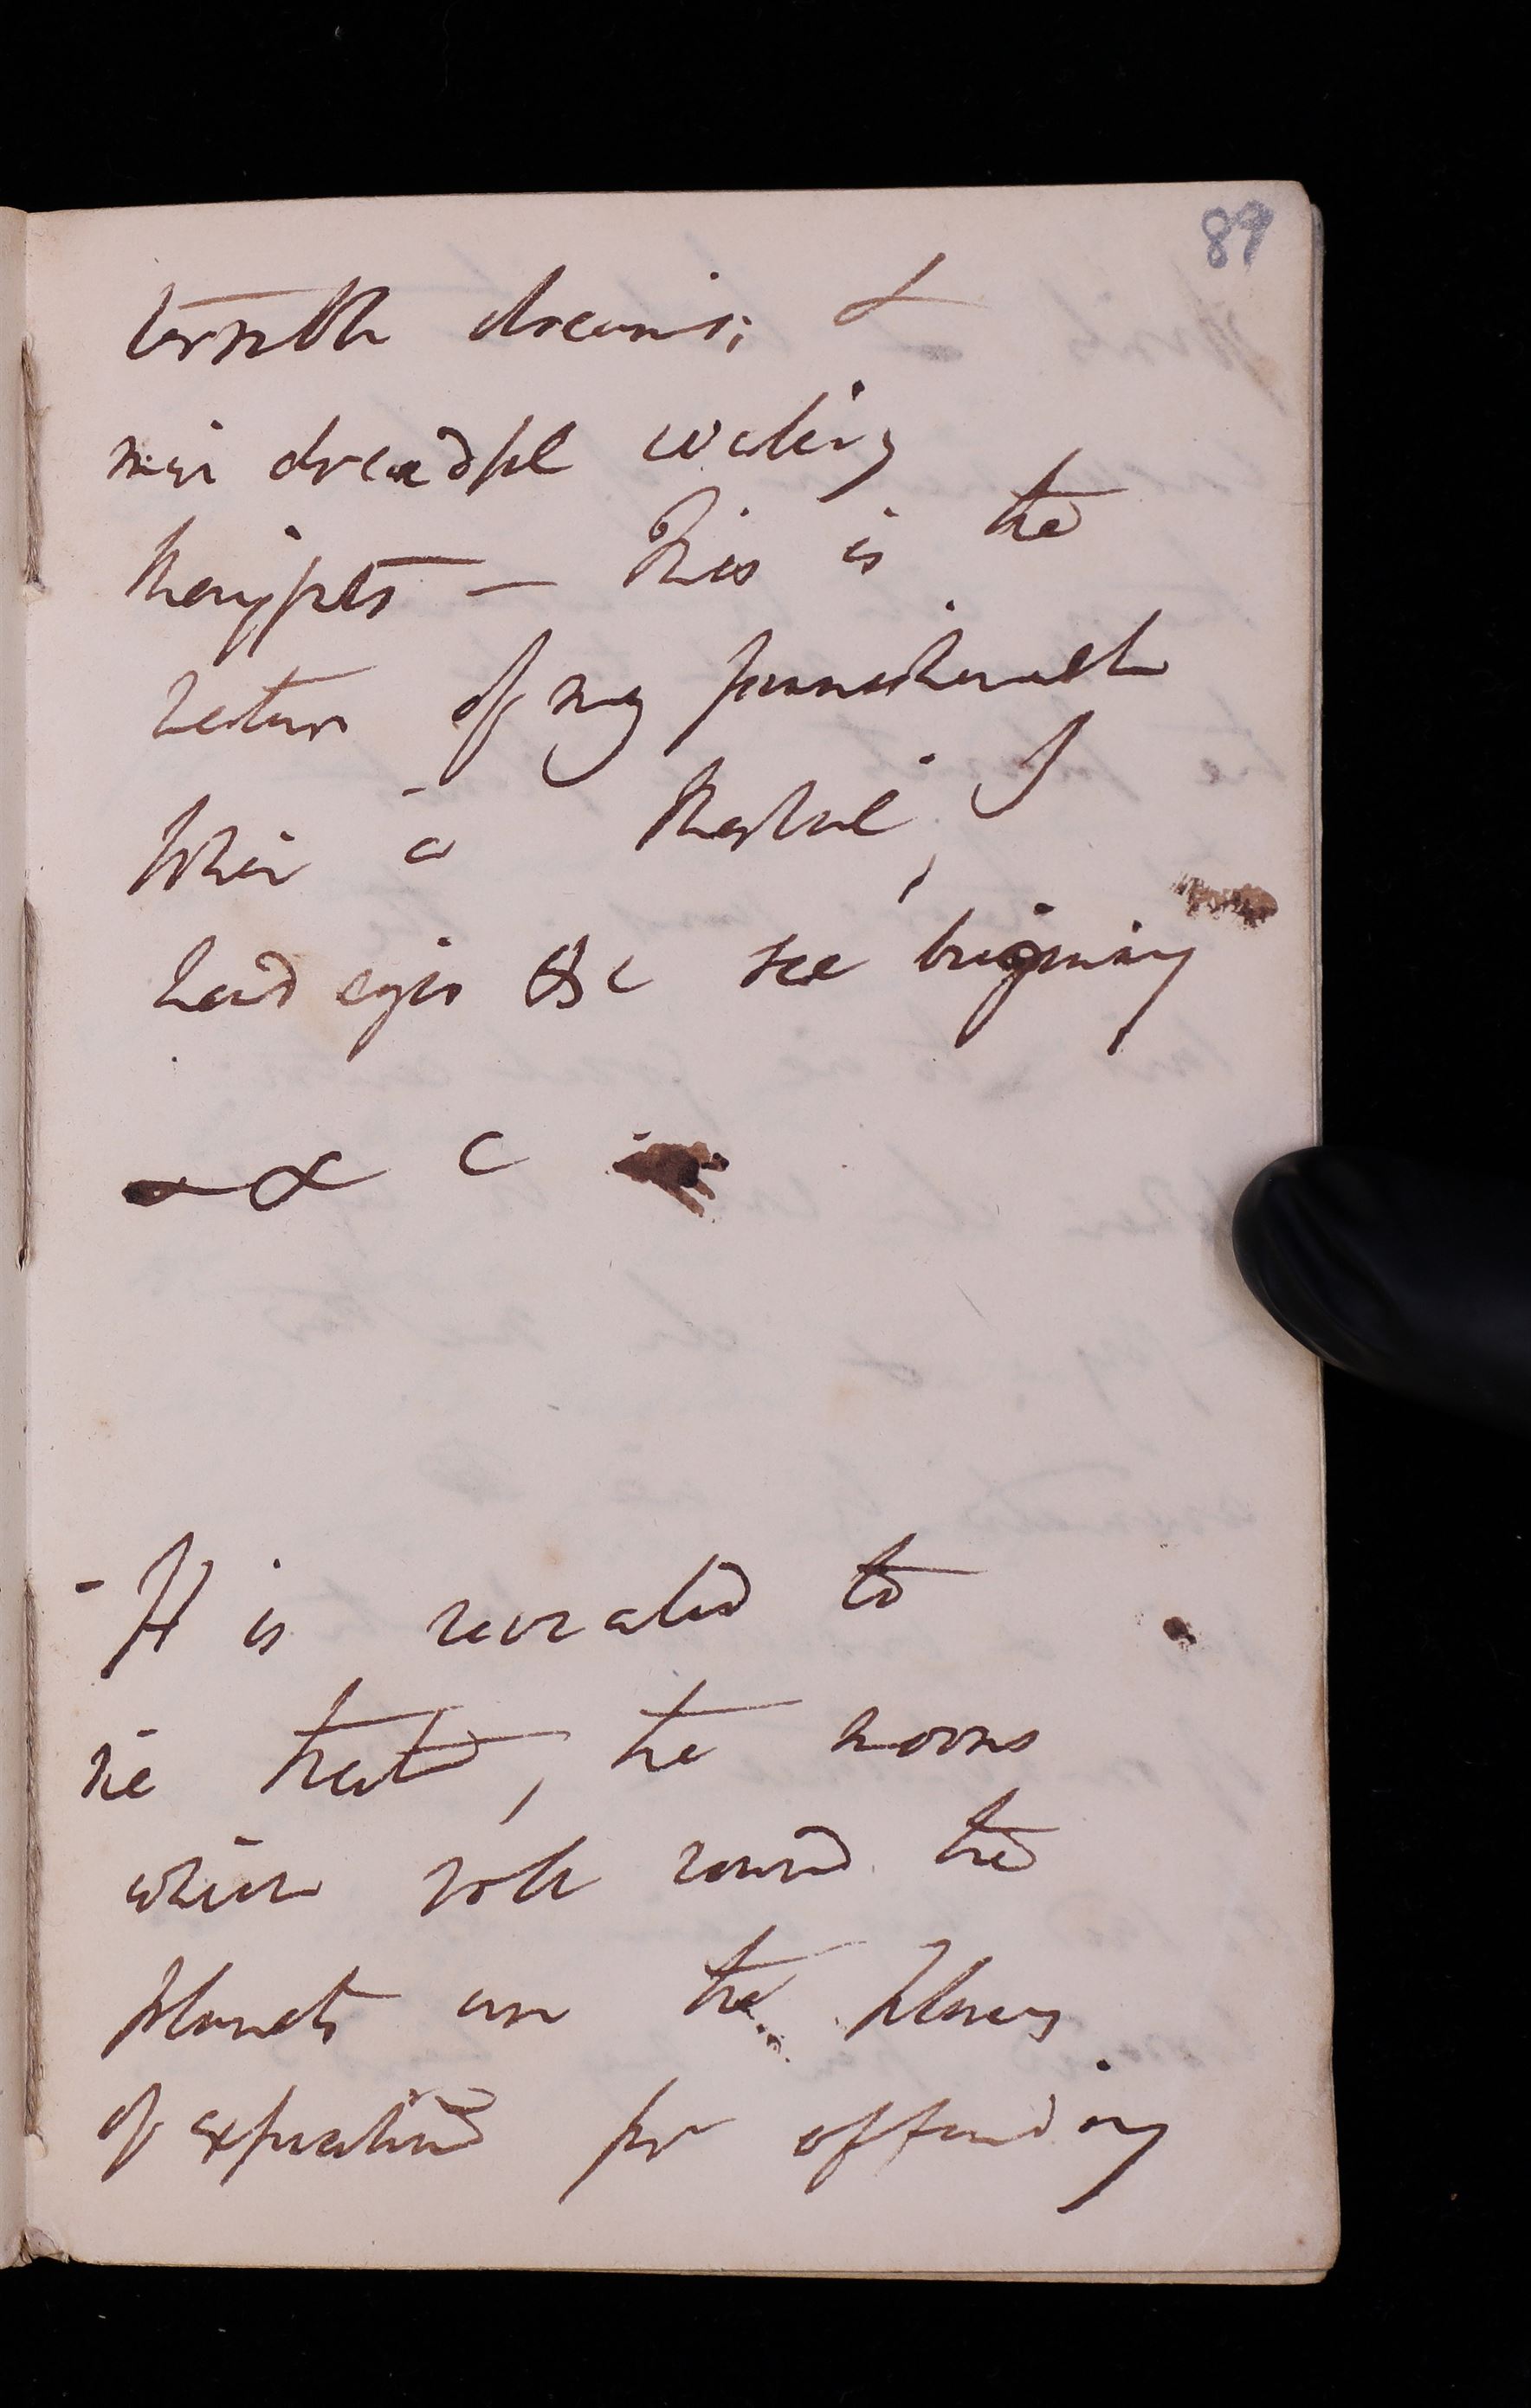 89
terrible dreams; &
more dreadful waking
thoughts — This is the
nature of my punishment
When a Mortal, I
had eyes &c see beginning
— & c
- It is revealed to
me that, the moons
which roll round the
planets are the places
of expiation for offending